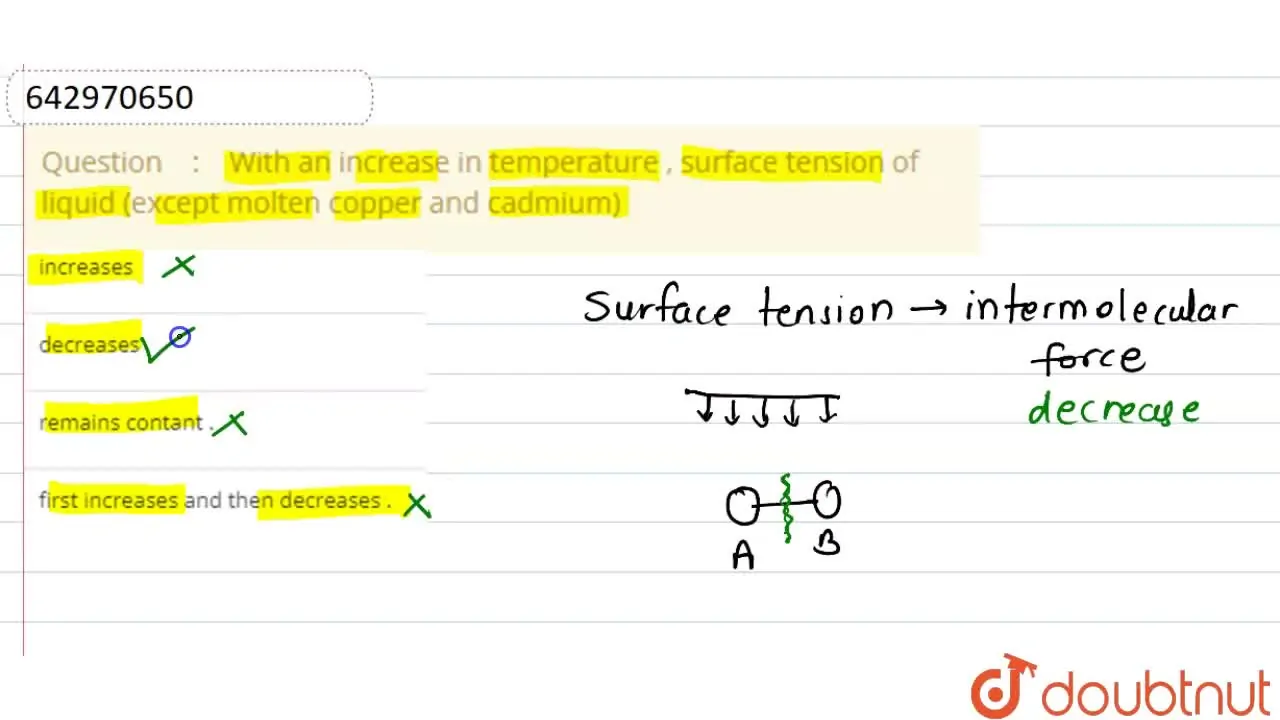 642970650
Question : With an increase in temperature , surface tension of
liquid (except molten copper and cadmium)
increases
decreases
remains contant .
first increases and then decreases .
Surface tension → intermolecular
force
decrease
A B
doubtnut